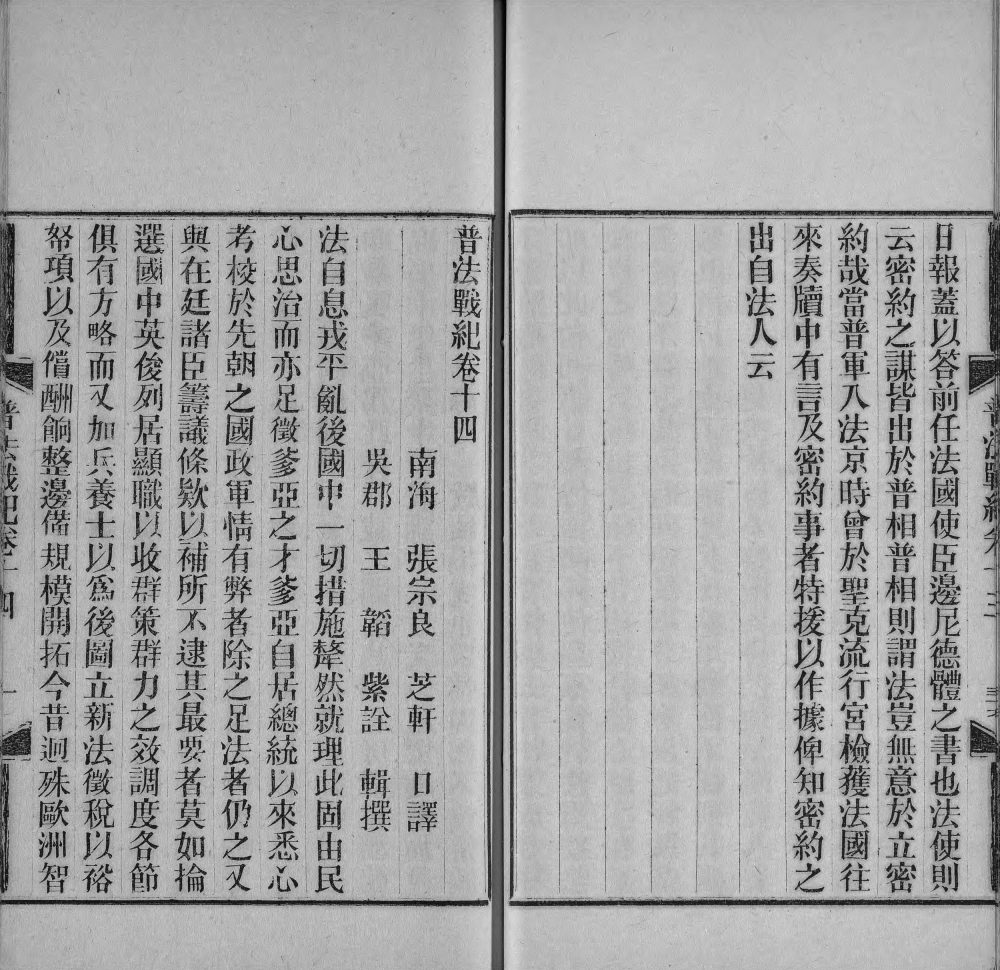 日報蓋以答前任法國使臣邊尼德體之書也法使則
云密約之謀皆出於普相普相則謂法豈無意於立密
約哉當普軍入法京時曾於聖克流行宮檢獲法國往
來奏牘中有言及密約事者特援以作據俾知密約之
出自法人云
普法戰紀卷十四
南海 張宗良 芝軒 口譯
吳郡 王 韜 紫詮 輯撰
法自息戎平亂後國中一切措施犛然就理此固由民
心思治而亦足徵爹亞之才爹亞自居總統以來悉心
考校於先朝之國政軍情有弊者除之足法者仍之又
與在廷諸臣籌議條欵以補所不逮其最要者莫如掄
選國中英俊列居顯職以收群策群力之效調度各節
俱有方略而又加兵養士以爲後圖立新法徵稅以裕
帑項以及償酬餉整邊備規模開拓今昔迥殊歐洲智
普法戰紀卷十四 一